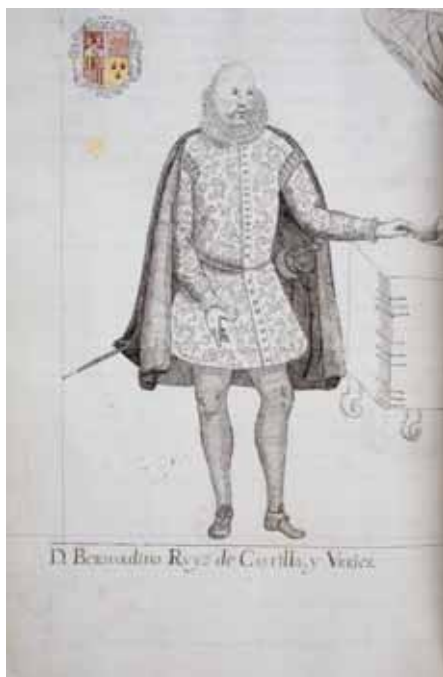 D. Bernardino Ruyz de Castilla, y